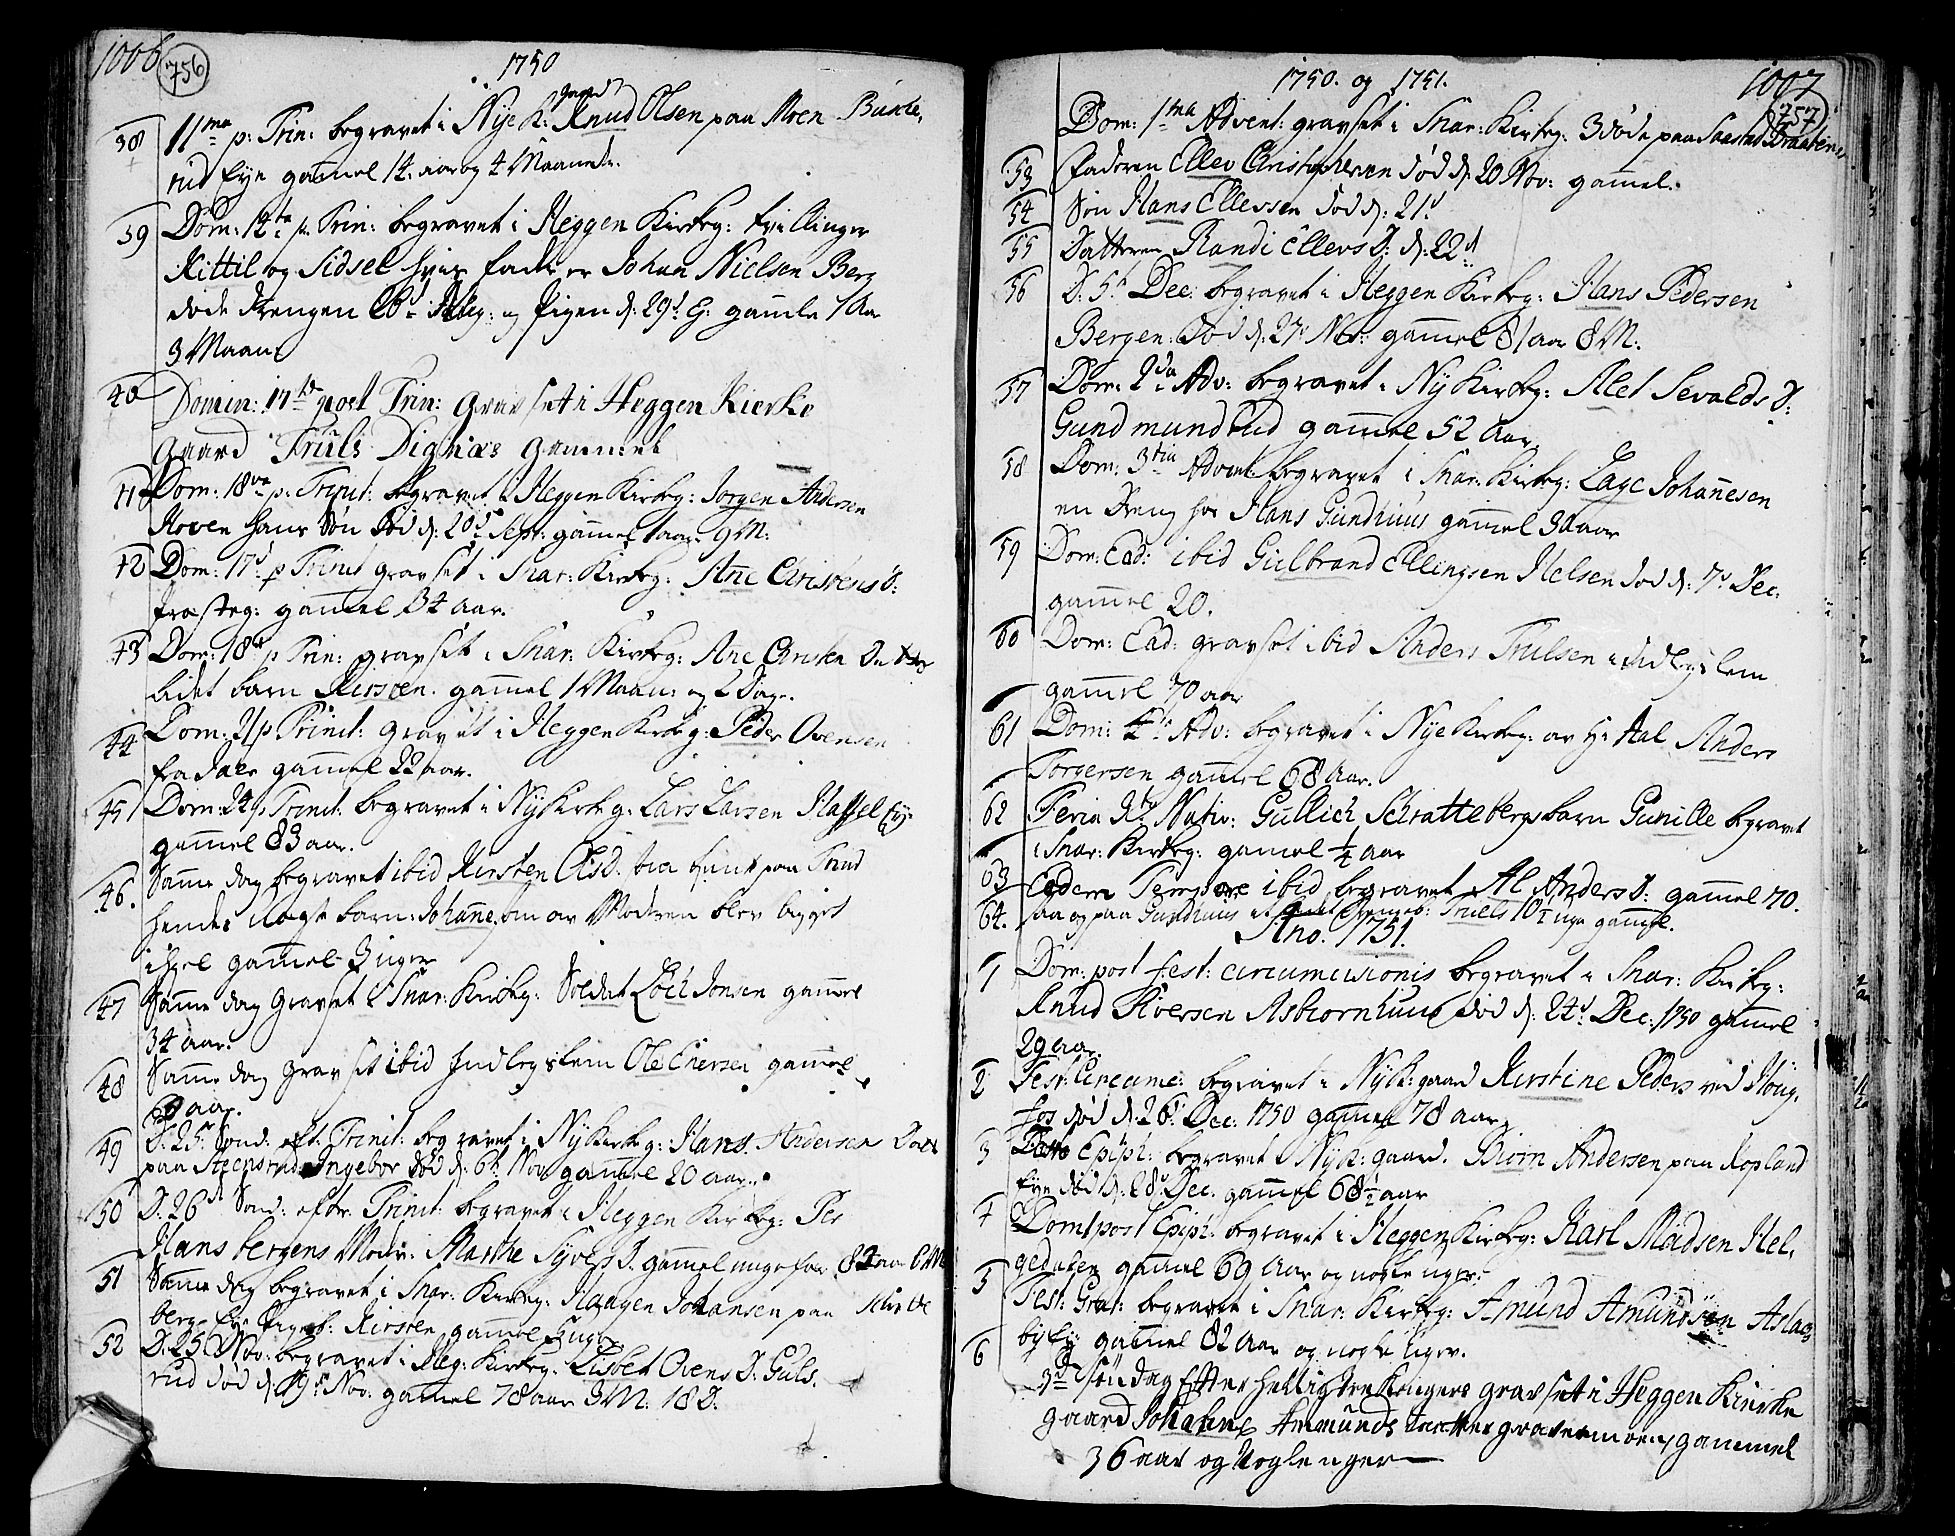 1006
756
1750
38 11ma p: Trin: begravet i Nye K: Knud Olsen paa Moen
rud Eye gammel 14. aar og 4 Maaneder.
39 Dom: 12te p. Trin: begravet i Heggen Kirkeg: tvillinger
Kittil og Sidsel hvis fader er Johan Nielsen Berg
døde drengen og Pigen d: 29d gamle 1 Aar
3 Maan:
40 Domin: 17de post Trin: gravset i Heggen Kierke
gaard Truls Dignæs gammel
41 Dom: 18va p: Trinit: begravet i Heggen Kirkeg: Jørgen Andersen
Moven hans Søn død d: 20d Sept: gammel 1 aar 9 M:
42 Dom: 17d: p Trinit gravset i Snar: Kirkeg: Ane Christens D:
Præsteg: gammel 34 aar.
43 Dom: 18d p Trin: gravset i Snar: Kirkeg: Ane
lidet barn Kirsten. gammel 1 Maan: og 2 Dage.
44 Dom: 21 p Trinit: gravset i Heggen Kirkeg: Peder Ovensen
fra Dale gammel 22 aar.
45 Dom: 24 p Trinit: begravet i Nykirkeg: Lars Larsen Hassel Ey:
gammel 83 aar.
46. Samme dag begravet ibid Kirsten Ols D. paa
hendes barn: Johanne, som av Moderen blev ligget
ihiel gammel 3 uger
47 Samme dag gravset i Snar: Kirkeg: Soldat Loch Jonsen gammel
34 aar.
48 Samme dag gravset ibid Indlegslem Ole Enersen gammel
aar.
49 D: 25d Sønd: eft: Trinit: begravet i Nykirkeg: Hans Andersen
paa Steensrud Ingebor død d: 6d Nov gammel 20 aar.
50 D: 26d Sønd: efter Trinit: begravet i Heggen Kirkeg: Per
Hansbergens Moder: Marthe Syvers D. gammel ungefær
51 Samme dag begravet i Snar: Kirkeg: Haagen Johansen paa
berg Eye Kirsten gammel
52 D: 25 Nov: begravet i Heg: Kirkeg: Lisbet Ovens D: Guls,
rud død d: 19d Nov: gammel 78 aar 3 M. 18 D.
1750. og 1751.
1007
757
Dom: 1ma Advent: gravset i Snar: Kirkeg: 3 døde paa Saastad
53 Faderen Ellev Christophersen død d: 20 Nov: gammel.
54 Søn Hans Ellevsen død d: 21d
55 Datteren Randi Ellevs D: d: 22d
56 D: 5d Dec: begravet i Heggen Kirkeg: Hans Pedersen
Bergen: død d: 27d Nov: gammel 81 aar 8 M.
57 Dom: 2da Adv: begravet i Nykirkeg: Alet Sevalds D:
Gundmundrud gammel 52 Aar.
58 Dom: 3tia Advent begravet i Snar: Kirkeg: Lage Johannesen
en Dreng hos Hans Gundhuus gammel aar
59 Dom: Ead: ibid Gulbrand Ellingsen Helsen død d: 7d Dec:
gammel 20.
60 Dom: Ead: gravset ibid Anders Trulsen indlegslem
gammel 70 aar
61 Dom: 4te Adv: begravet i Nyekirkeg: av Hr Aal Anders
Torgersen gammel 68 Aar.
62 Feria Nativ: Gullich Schrattebergs barn Gunille begravet
i Snar: Kirkeg: gamel 1/4 aar
63 Eodem Tempore ibid begravet Al Anders D: gammel 70.
64. saa og paa Gundhuus et Truels 10 uger gammel.
Ano. 1751.
1 Dom: post fest: circumcisionis begravet i Snar: Kirkeg:
Knud Iversen Asbiornhuus død d: 24d Dec: 1750 gammel
29 aar
2 Fest: Circumc: begravet i Nyk: gaard Kirstine Peders ved Høng,
fos død d: 26d Dec: 1750 gammel 78 aar
3 Festo Epiph: begravet i Nyk: gaard. Biørn Andersen paa Kopland
Eye død d: 28d Dec: gammel 68 1/2 aar
4 Dom 1 post Epiph: begravet i Heggen Kirkeg: Karl Madsen Hel,
gedalen gammel 69 Aar og nogle uger.
5 Fest: begravet i Snar: Kirkeg: Amund Amundsøn Aslac,
by Ey gammel 82 Aar og nogle Uger.
6 3de søndag Efter hellig tre Kongers gravset i Heggen Kierke
gaard Johanne Ammunds datter gravermoen gammel
36 aar og Nogle uger